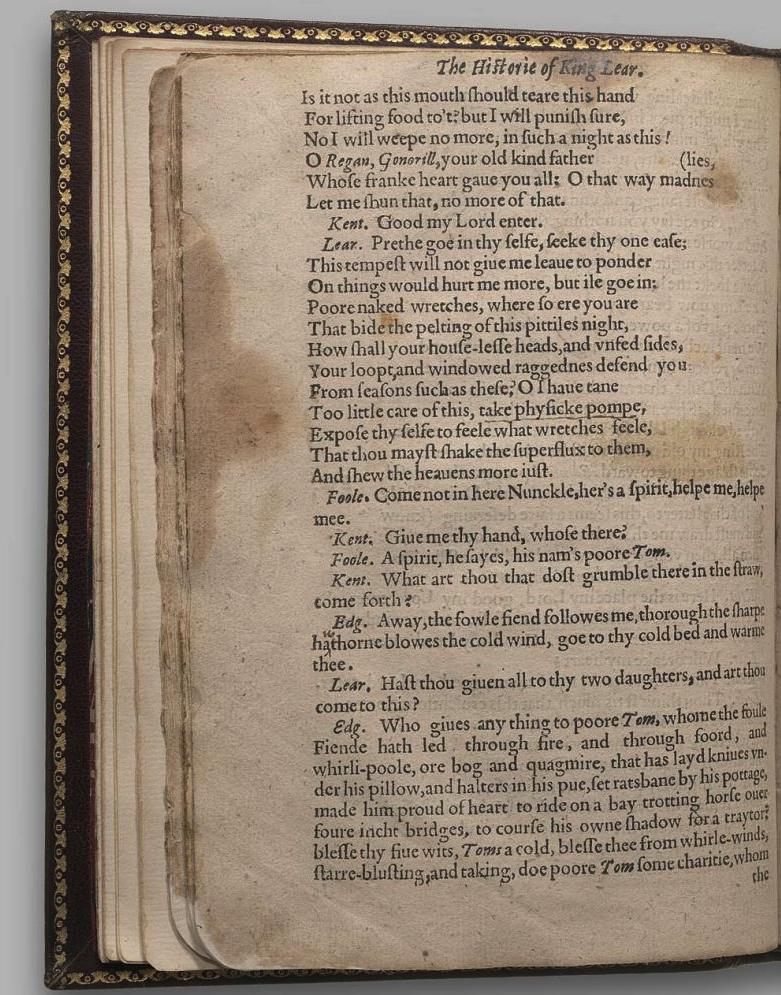 The Historie of King Lear.
Is it not as this mouth ſhould teare this hand
For lifting food to't? but I will puniſh ſure,
No I will weepe no more, in ſuch a night as this!
O Regan, Gonorill, your old kind father (lies,
Whoſe franke heart gaue you all: O that way madnes
Let me ſhun that, no more of that.
Kent. Good my Lord enter.
Lear. Prethe goe in thy ſelfe, ſeeke thy one eaſe;
This tempeſt will not giue me leaue to ponder
On things would hurt me more, but ile goe in:
Poore naked wretches, where ſo ere you are
That bide the pelting of this pittiles night,
How ſhall your houſe-leſſe heads, and vnfed ſides,
Your loopt, and windowed raggednes defend you
From ſeaſons ſuch as theſe? O I haue tane
Too little care of this, take phyſicke pompe,
Expoſe thy ſelfe to feele what wretches feele,
That thou mayſt ſhake the ſuperflux to them,
And ſhew the heauens more iuſt.
Foole. Come not in here Nunckle, her's a ſpirit, helpe me, helpe
mee.
Kent. Giue me thy hand, whoſe there?
Foole. A ſpirit, he ſayes, his nam's poore Tom.
Kent. What art thou that doſt grumble there in the ſtraw,
come forth?
Edg. Away, the fowle fiend followes me, thorough the ſharpe
hathorne blowes the cold wind, goe to thy cold bed and warme
thee.
Lear. Haſt thou giuen all to thy two daughters, and art thou
come to this?
Edg. Who giues any thing to poore Tom, whome the foule
Fiende hath led through fire, and through foord, and
whirli-poole, ore bog and quagmire, that has layd kniues vn-
der his pillow, and halters in his pue, ſet ratsbane by his pottage,
made him proud of heart to ride on a bay trotting horſe ouer
foure incht bridges, to courſe his owne ſhadow for a traytor;
bleſſe thy fiue wits, Toms a cold, bleſſe thee from whirle-winds,
ſtarre-bluſting, and taking, doe poore Tom ſome charitie, whom
the